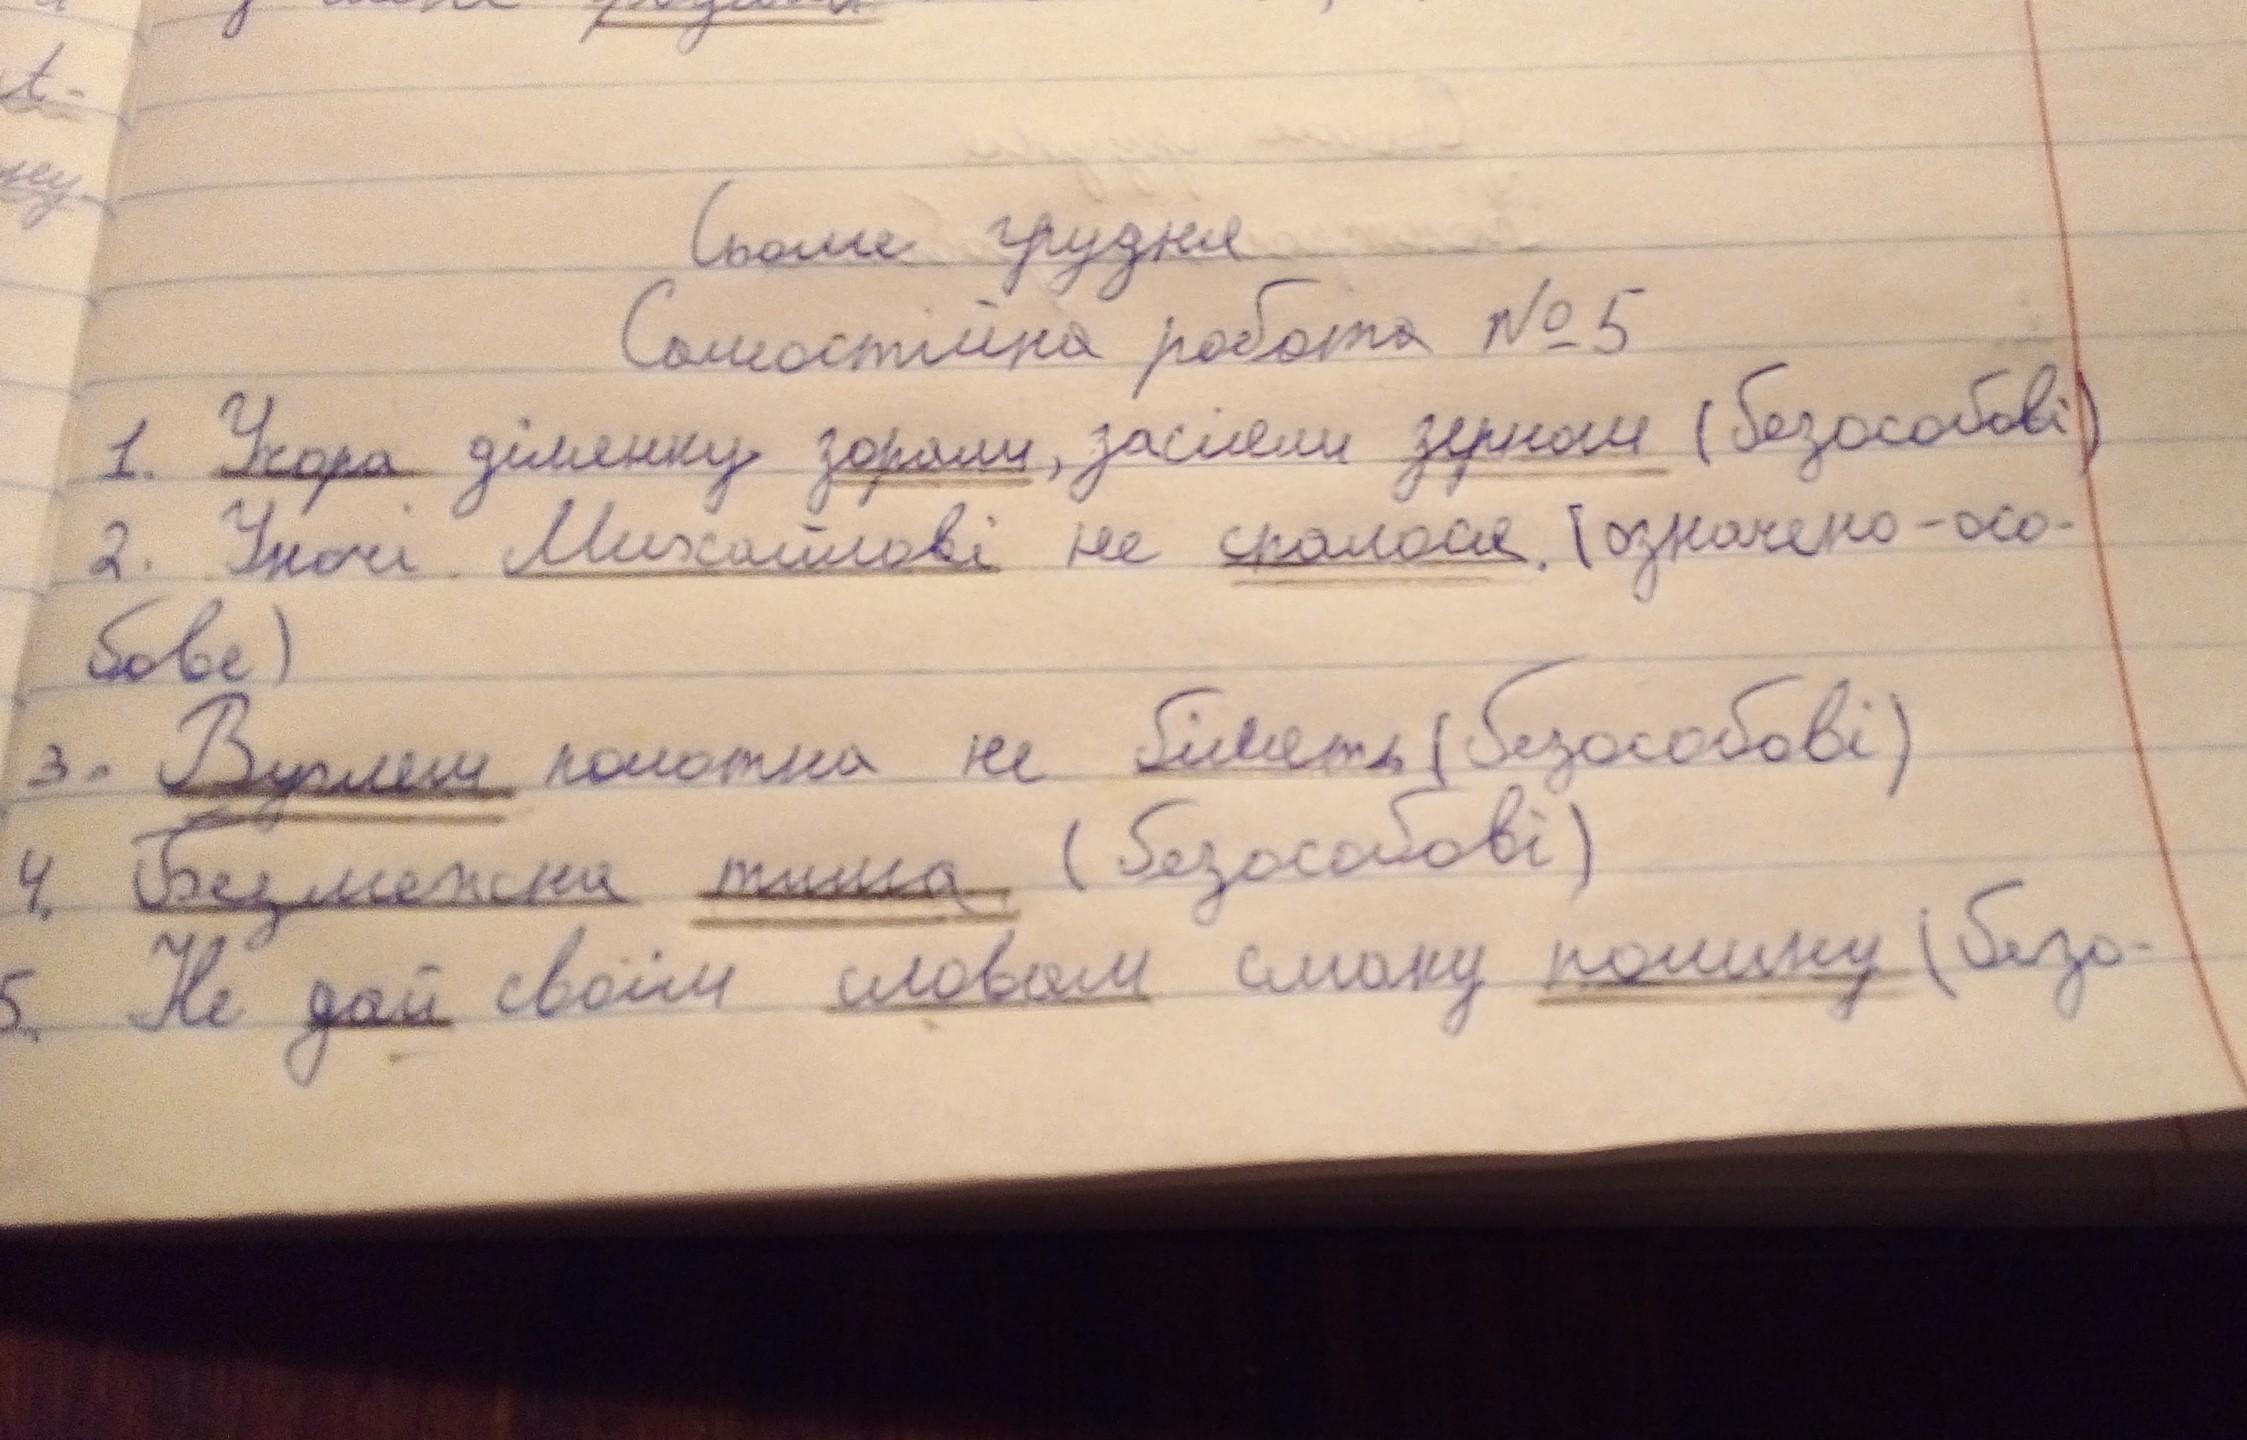 Сьоме грудня
Самостійна робота №5
1. Укора ділянку зорали, засіяли зерном (безособові)
2. Уночі Михайлові не спалося. (означено-осо-
бове)
3. Вуглем полотна не білять (безособові)
4. Безмежна тиша. (безособові)
5. Не дай своїм словам смаку полину (безо-